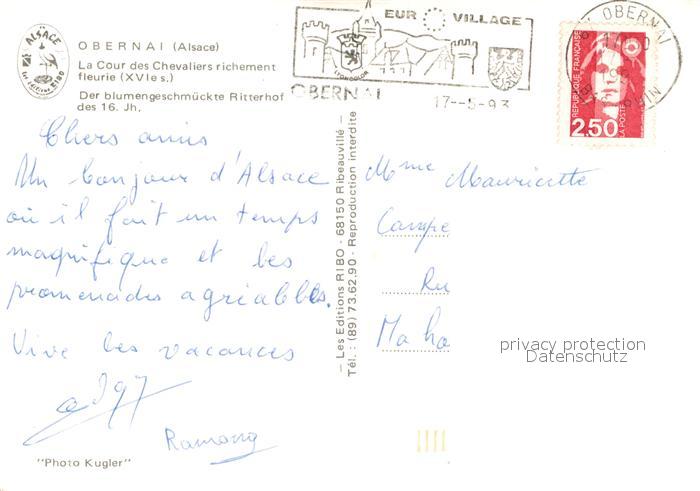 ALSACE
OBERNAI (Alsace)
La Cour des Chevaliers richement
fleurie (XVIe s.)
Der blumengeschmückte Ritterhof
des 16. Jh.
EUR VILLAGE
OBERNAI
17--5-93
OBERNAI
RHIN
REPUBLIQUE FRANÇAISE
LA POSTE
2,50
Chers amis
Un bonjour d'Alsace
où il fait un temps
magnifique et les
promenades agréables.
Vive les vacances
"Photo Kugler"
— Les Editions RIBO - 68150 Ribeauvillé —
Tél. : (89) 73.62.90 - Reproduction interdite
Mme Mauricette
Campe
Ru
Ma ha
privacy protection
Datenschutz